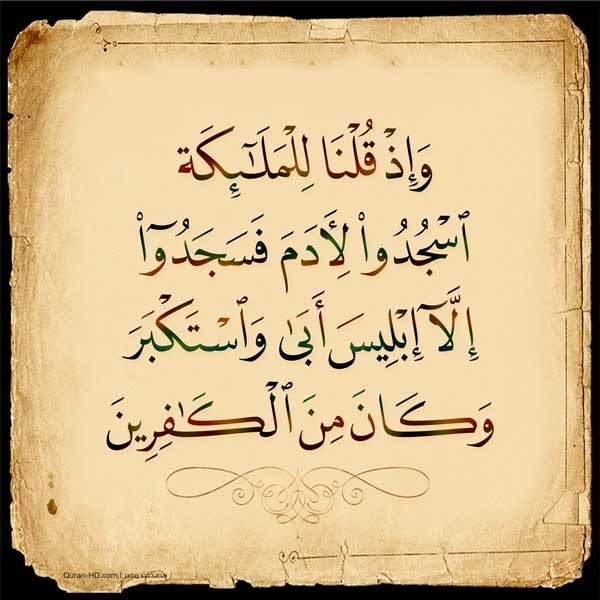 وَإِذْ قُلْنَا لِلْمَلَـٰٓئِكَةِ
ٱسْجُدُوا۟ لِـَٔادَمَ فَسَجَدُوٓا۟
إِلَّآ إِبْلِيسَ أَبَىٰ وَٱسْتَكْبَرَ
وَكَانَ مِنَ ٱلْكَـٰفِرِينَ
Quran-HD.com | مصحف مصر